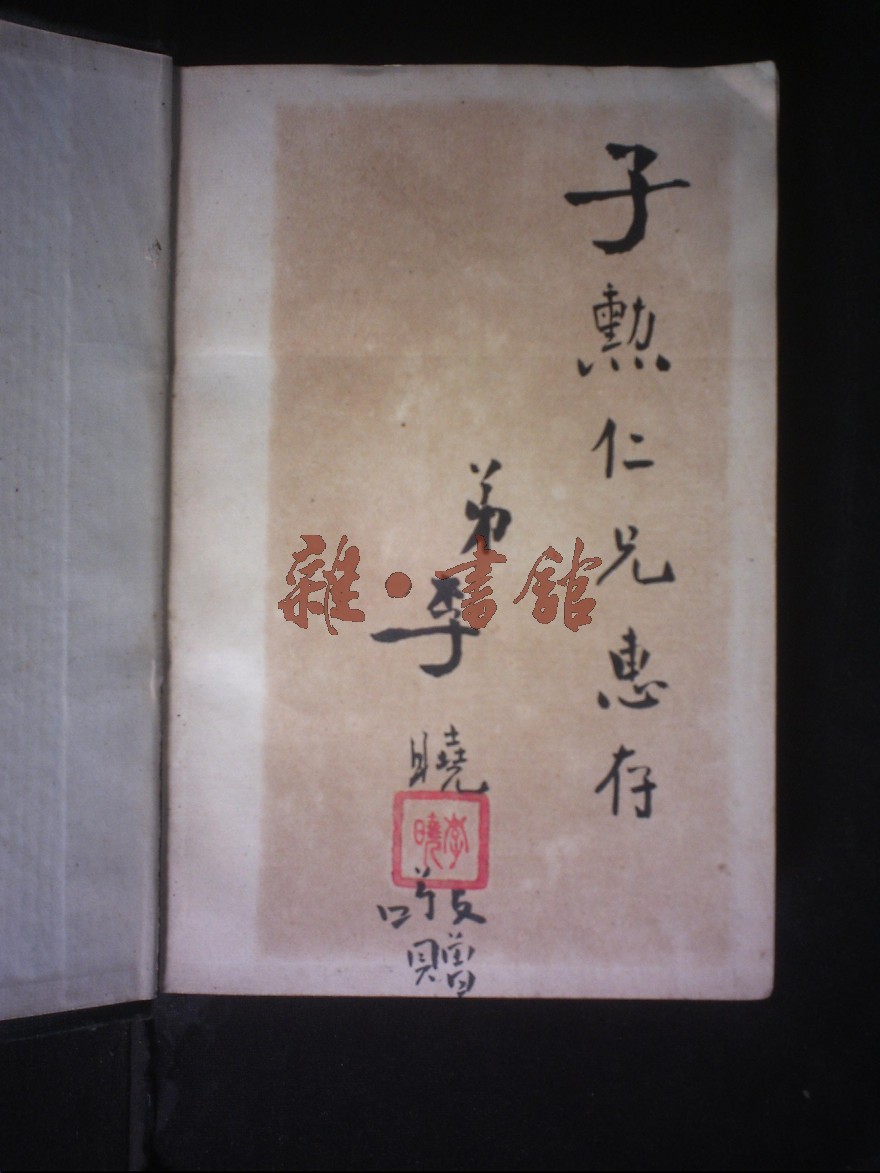 子勲仁兄惠存
弟李曉
敬贈
李曉
雜·書館